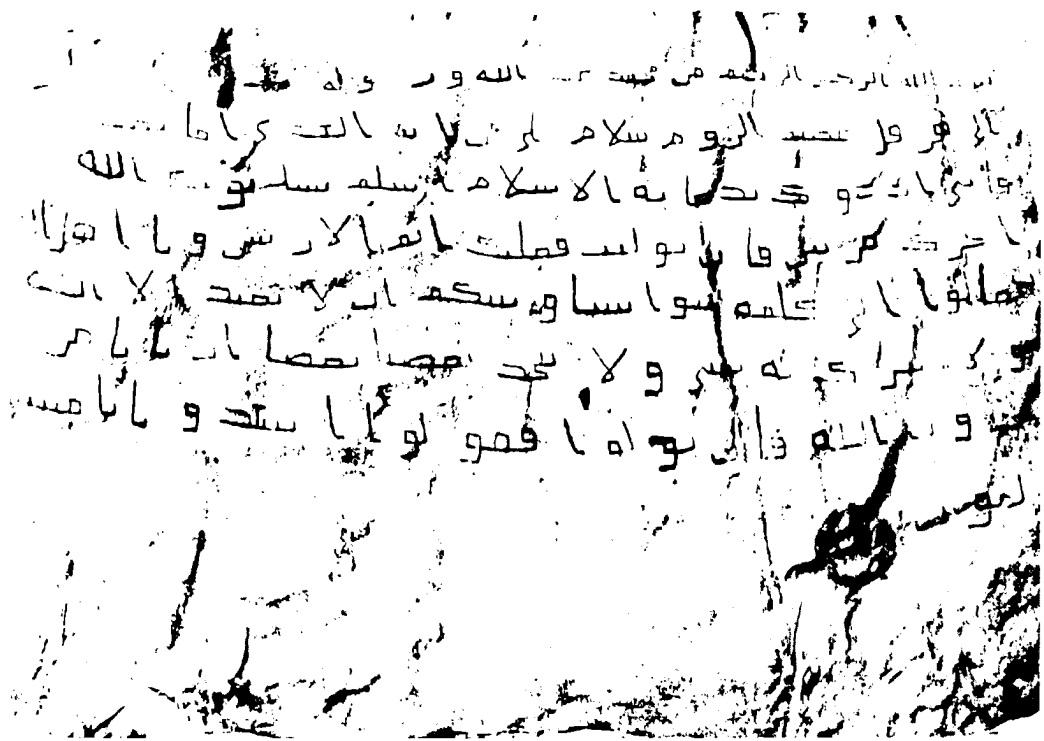 بسم الله الرحمن الرحيم من محمد عبد الله ورسوله
الى هرقل عظيم الروم سلام على من اتبع الهدى اما بعد
فانى ادعوك بدعاية الاسلام اسلم تسلم يوتك الله
اجرك مرتين فان توليت فعليك اثم الاريسين ويا اهل
تعالوا الى كلمة سوا بيننا وبينكم ان لا نعبد الا الله
ولا نشرك به شيا ولا يتخذ بعضنا بعضا اربابا من
دون الله فان تولوا فقولوا اشهدوا بانا مس
لمون